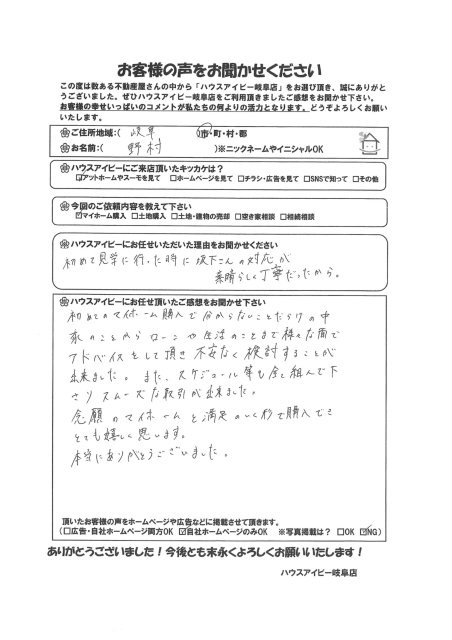 お客様の声をお聞かせください
この度は数ある不動産屋さんの中から「ハウスアイビー岐阜店」をお選び頂き、誠にありがと
うございました。ぜひハウスアイビー岐阜店をご利用頂きましたご感想をお聞かせ下さい。
お客様の幸せいっぱいのコメントが私たちの何よりの活力となります。どうぞよろしくお願い
いたします。
ご住所地域:( 岐阜 市・町・村・郡
お名前:( 野村 )※ニックネームやイニシャルOK
ハウスアイビーにご来店頂いたキッカケは?
☑アットホームやスーモを見て □ホームページを見て □チラシ・広告を見て □SNSで知って □その他
今回のご依頼内容を教えて下さい
☑マイホーム購入 □土地購入 □土地・建物の売却 □空き家相談 □相続相談
ハウスアイビーにお任せいただいた理由をお聞かせください
初めて見学に行った時に坂下さんの対応が
素晴らしく丁寧だったから。
ハウスアイビーにお任せ頂いたご感想をお聞かせ下さい
初めてのマイホーム購入で分からないことだらけの中
家のことから ローンや生活のことまで様々な面で
アドバイスをして頂き 不安なく検討することが
出来ました。また、スケジュール等も全て組んで下
さり スムーズな取引が出来ました。
念願のマイホームを満足のいく形で購入でき
とても嬉しく思います。
本当にありがとうございました。
頂いたお客様の声をホームページや広告などに掲載させて頂きます。
(□広告・自社ホームページ両方OK ☑自社ホームページのみOK ※写真掲載は? □OK ☑NG)
ありがとうございました!今後とも末永くよろしくお願いいたします!
ハウスアイビー岐阜店